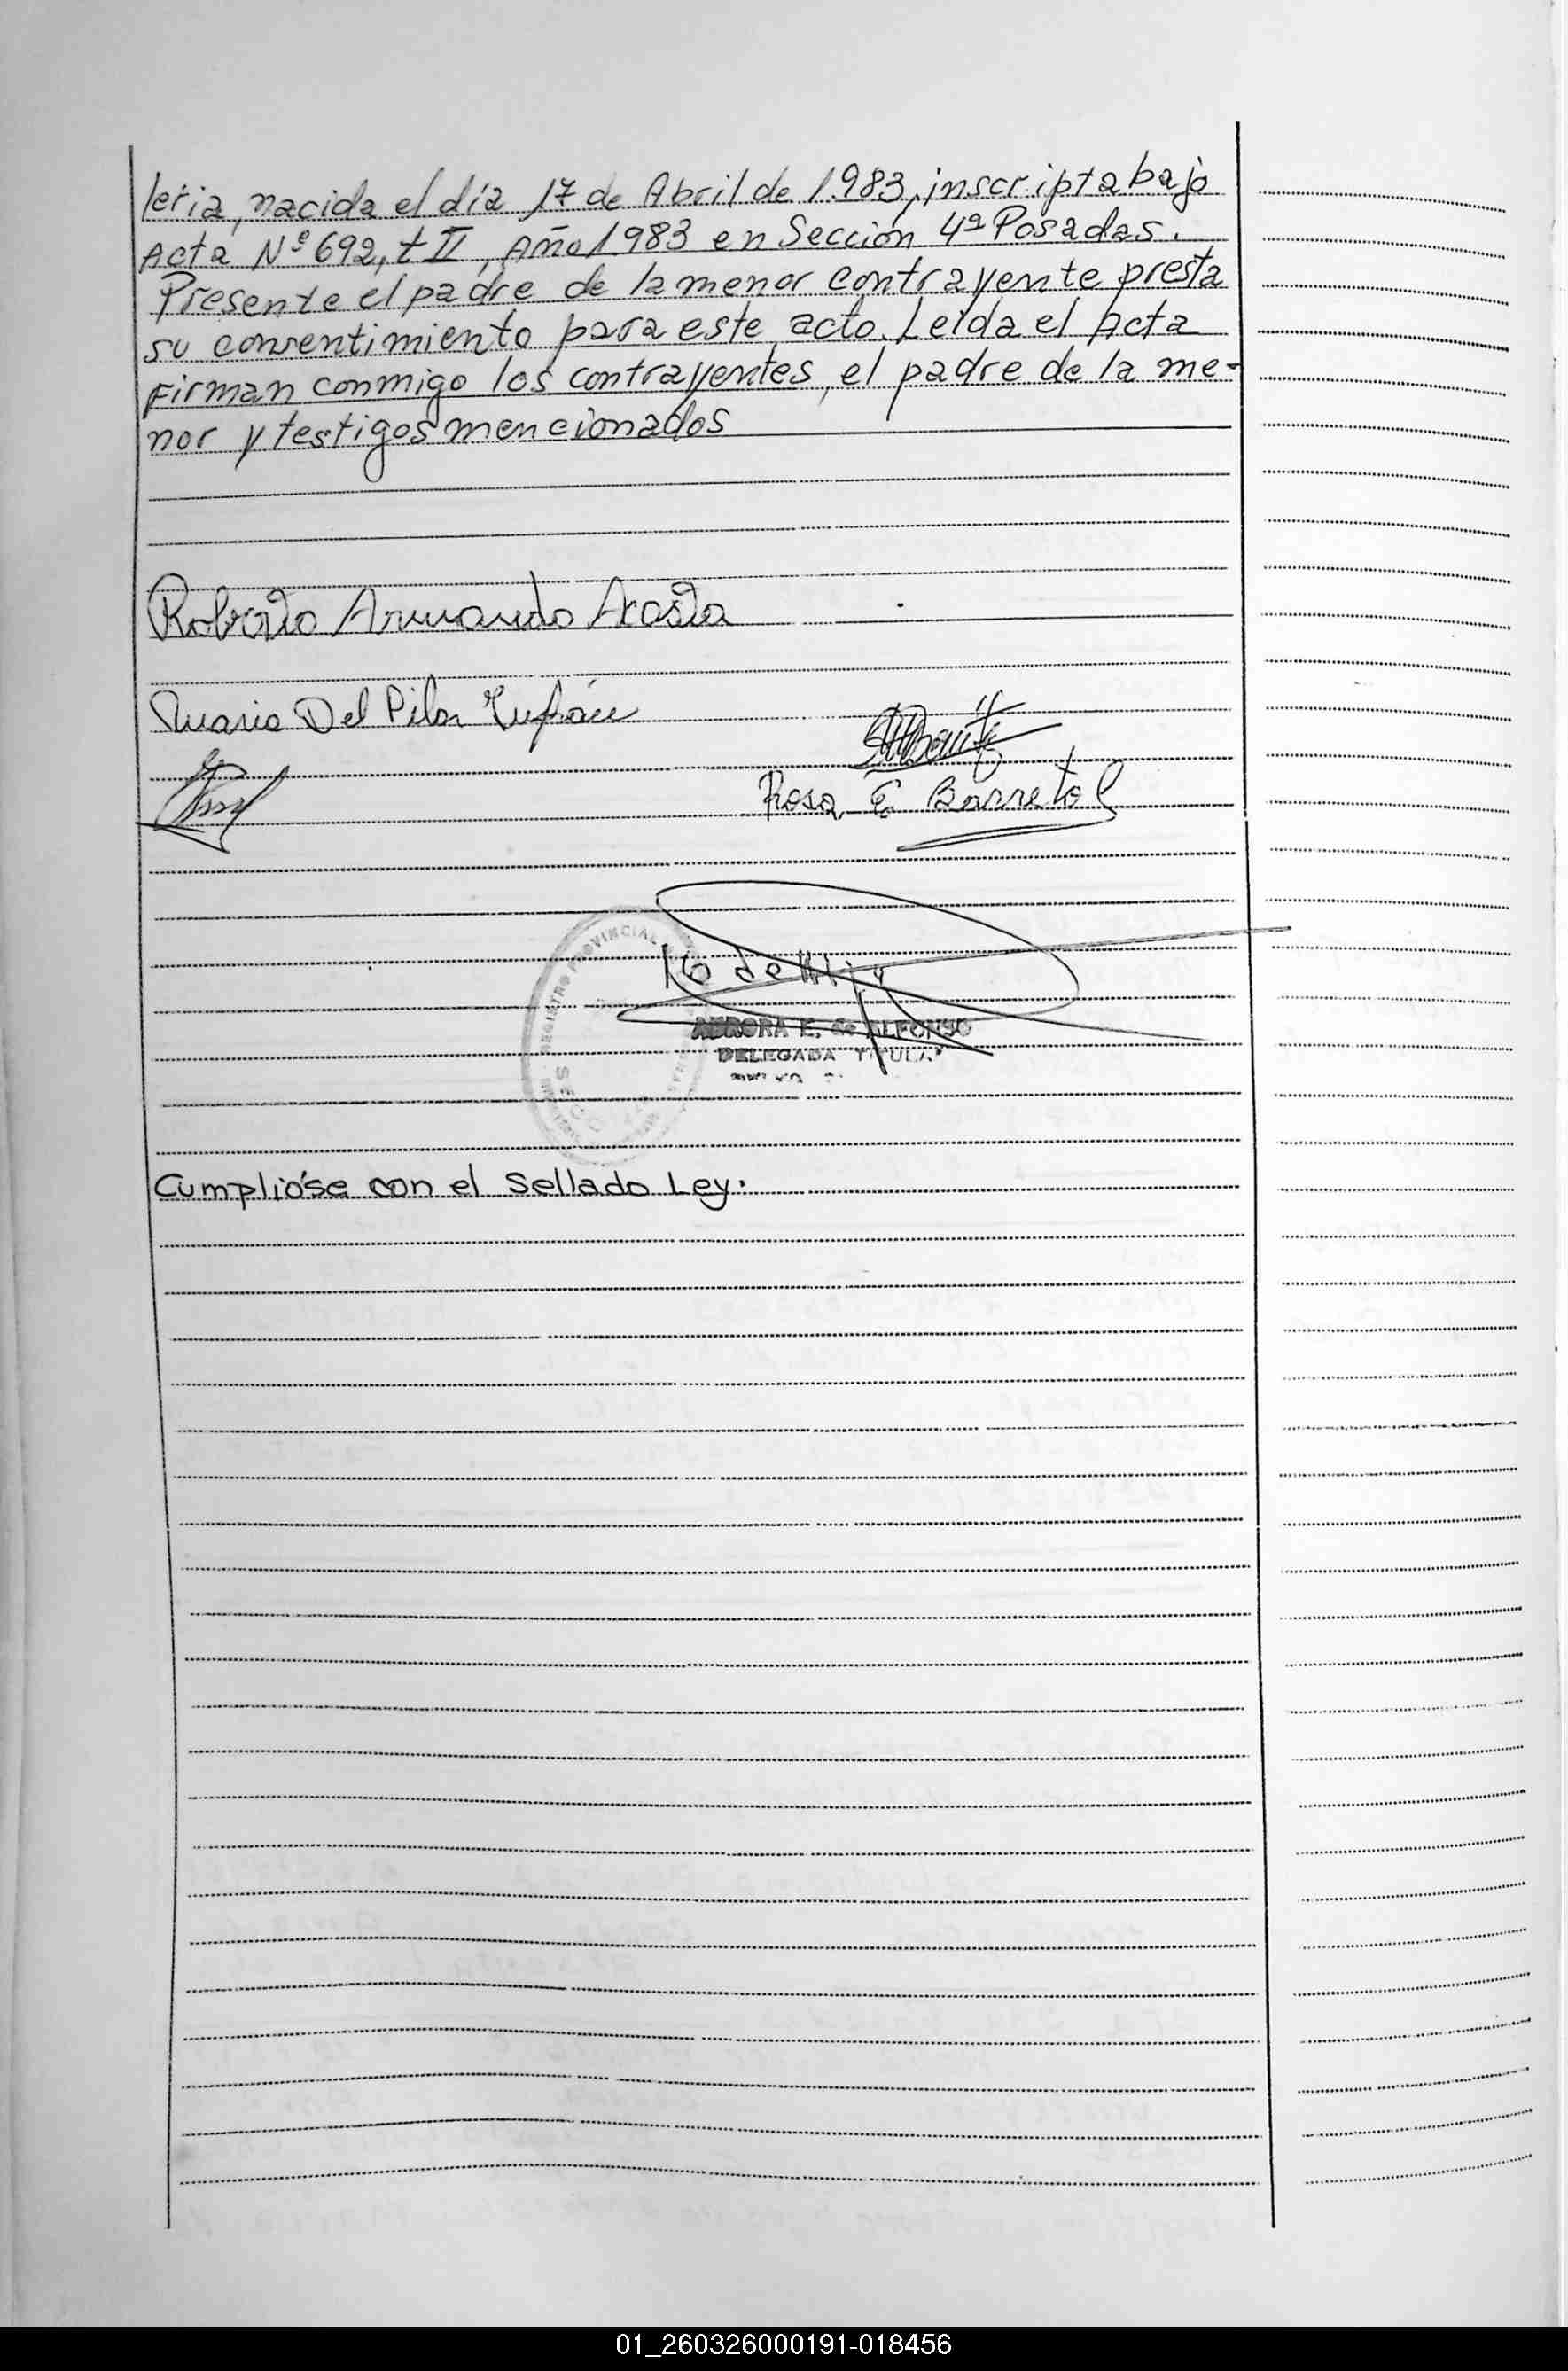 leria, nacida el día 17 de Abril de 1.983, inscripta bajo
Acta Nº 692, t II, Año 1983 en Sección 4ª Posadas.
Presente el padre de la menor contrayente presta
su consentimiento para este acto. Leída el Acta
Firman conmigo los contrayentes, el padre de la me-
nor y testigos mencionados
Roberto Armando Acosta
Maria Del Pilar
Rosa E Barreto
REGISTRO PROVINCIAL
AURORA E. de ALFONSO
DELEGADA TITULAR
Cumplióse con el Sellado Ley.
01_260326000191-018456